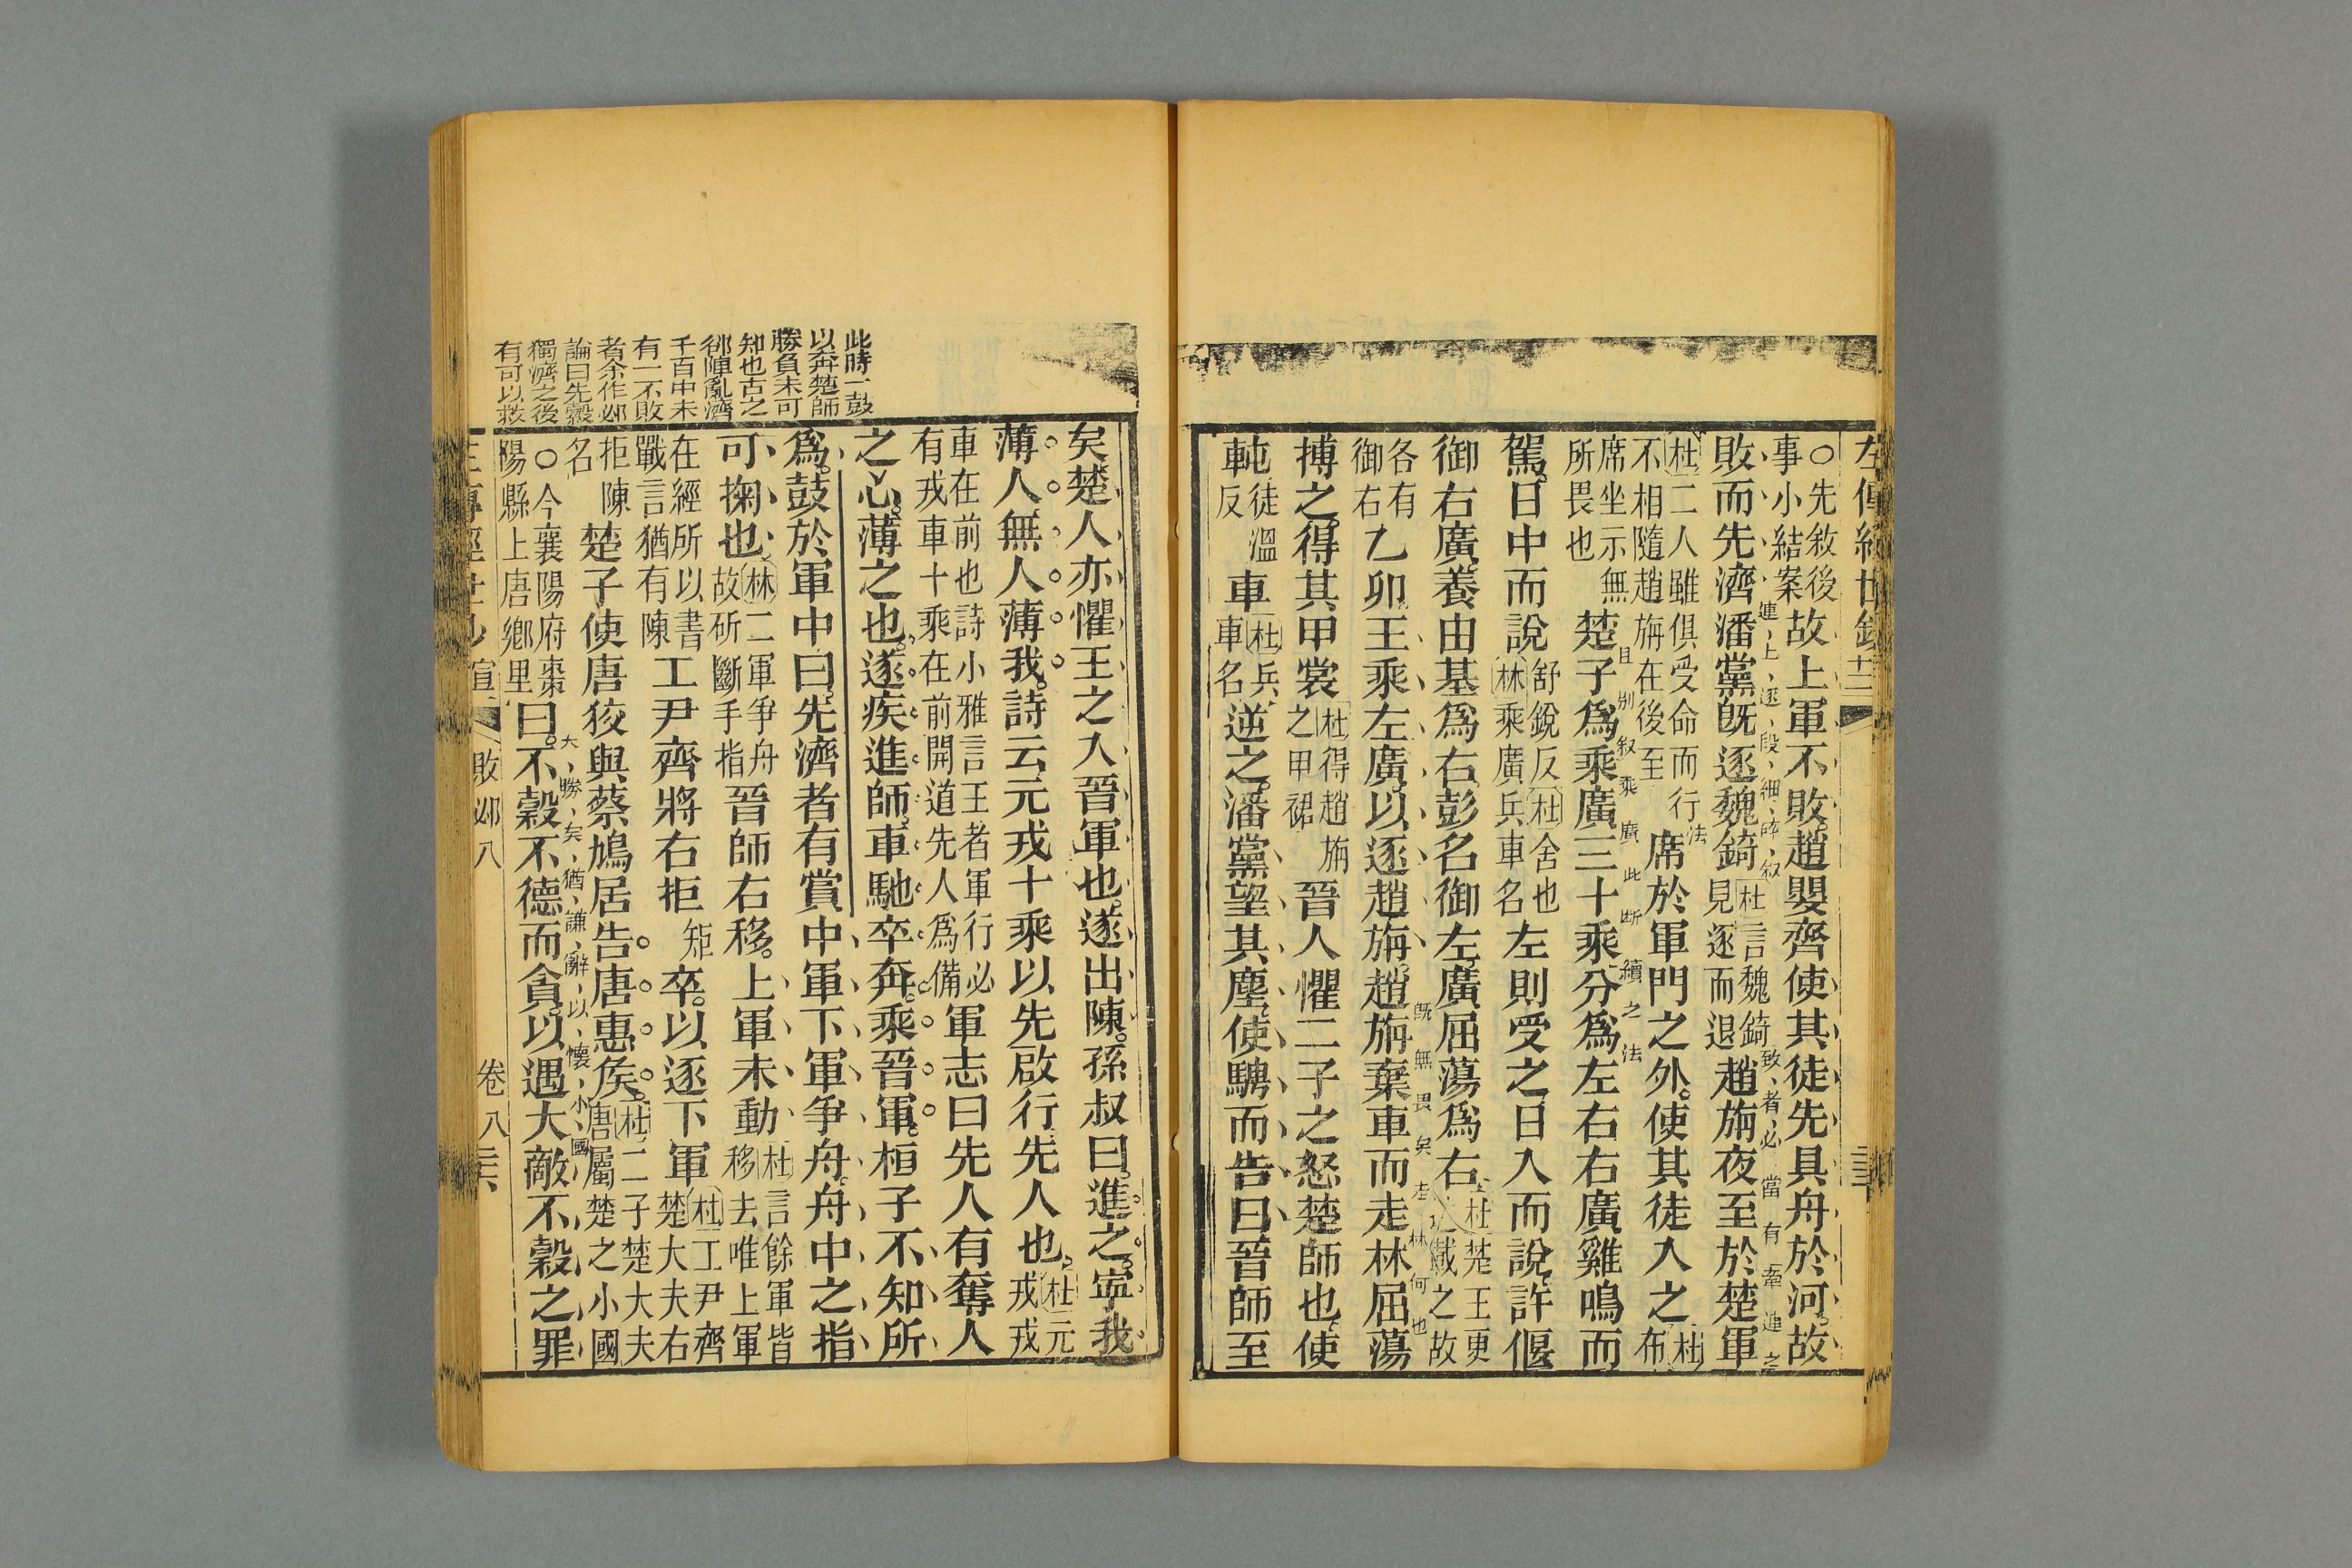 ○先敘後故上軍不敗趙嬰齊使其徒先具舟於河故
事小結案
敗而先濟潘黨旣逐魏錡杜言魏錡見逐而退趙旃夜至於楚軍
連上逐段細碎敘
致者必當有牽連之
杜二人雖俱受命而行不相隨趙旃在後至席於軍門之外使其徒入之杜布
法
席坐示無所畏也楚子爲乘廣三十乘分爲左右右廣雞鳴而
且別敘乘廣此斷續之法
駕日中而說舒銳反杜舍也林乘廣兵車名左則受之日入而說許偃
御右廣養由基爲右彭名御左廣屈蕩爲右杜楚王更載之故
各有御右乙卯王乘左廣以逐趙旃趙旃棄車而走林屈蕩
旣無畏矣走林何也
搏之得其甲裳杜得趙旃之甲裙晉人懼二子之怒楚師也使
軘徒溫反車杜兵車名逆之潘黨望其塵使騁而告曰晉師至
矣楚人亦懼王之入晉軍也遂出陳孫叔曰進之寧我
薄人無人薄我詩云元戎十乘以先啟行先人也杜元戎戎
車在前也詩小雅言王者軍行必有戎車十乘在前開道先人爲備軍志曰先人有奪人
之心薄之也遂疾進師車馳卒奔乘晉軍桓子不知所
爲鼓於軍中曰先濟者有賞中軍下軍爭舟舟中之指
可掬也林二軍爭舟故斫斷手指晉師右移上軍未動杜言餘軍皆移去唯上軍
在經所以書戰言猶有陳工尹齊將右拒矩卒以逐下軍杜工尹齊楚大夫右
拒陳名楚子使唐狡與蔡鳩居告唐惠矦杜二子楚大夫唐屬楚之小國
○今襄陽府棗陽縣上唐鄉里曰不穀不德而貪以遇大敵不穀之罪
大勝矣猶謙辭以懷小國
敗邲八
卷八
此時一鼓
以奔楚師
勝負未可
知也古之
邲陣亂濟
千百中未
有一不敗
者余作邲
論曰先縠
獨濟之後
有可以救